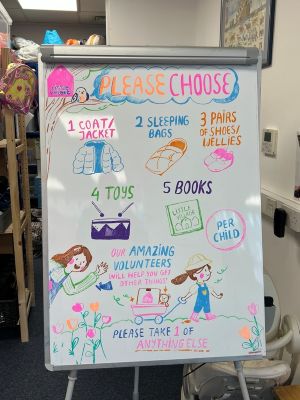 PLEASE CHOOSE
1 COAT/
JACKET
2 SLEEPING
BAGS
3 PAIRS
OF SHOES/
WELLIES
4 TOYS
5 BOOKS
LITTLE
PER
CHILD
OUR AMAZING
VOLUNTEERS
WILL HELP YOU GET
OTHER THINGS!
PLEASE TAKE 1 OF
ANYTHING ELSE